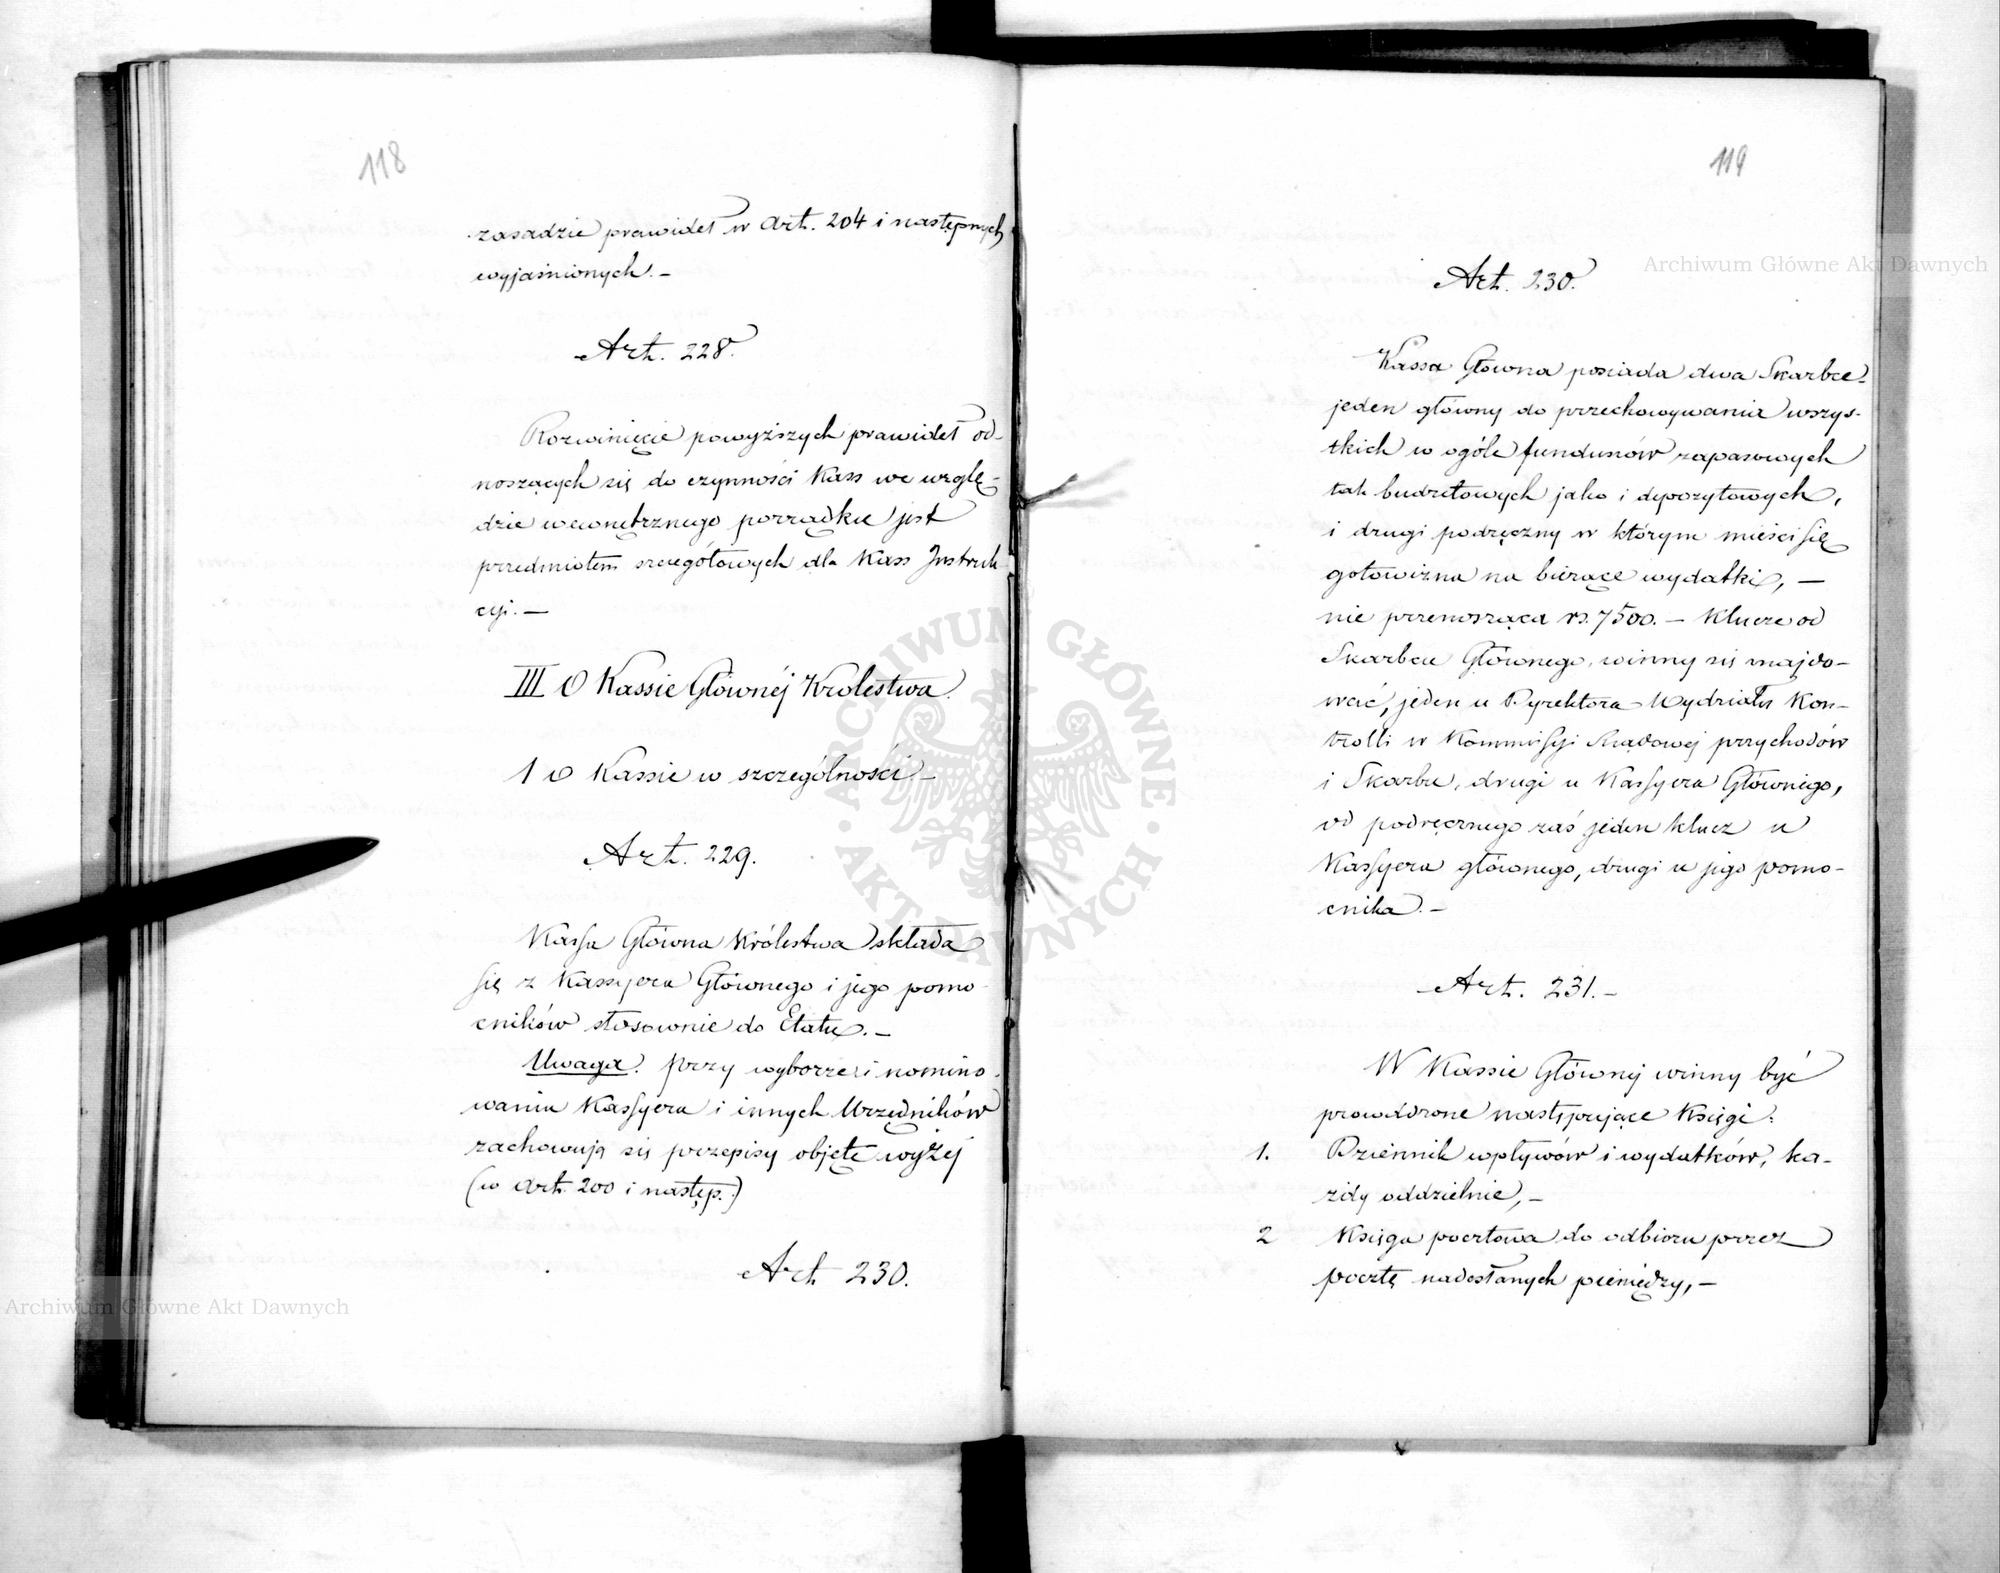 118
zasadzie prawideł w Art. 204 i następnych
wyjaśnionych. –
Art. 228.
Rozwinięcie powyższych prawideł od-
noszących się do czynności Kass we wzglę-
dzie wewnętrznego porządku jest
przedmiotem szczegółowych dla Kass Instruk-
cyi. –
III O Kassie Głównéj Królestwa.
1 o Kassie w szczególności –
Art. 229.
Kassa Główna Królestwa składa
się z Kassyera Głównego i jego pomo-
cników stosownie do Etatu. –
Uwaga. przy wyborze i nomino-
waniu Kassyera i innych Urzędników
zachowują się przepisy objęte wyżéj
(w Art. 200 i następ.)
Art 230.
119
Art. 230.
Kassa Główna posiada dwa Skarbce.
jeden główny do przechowywania wszys-
tkich w ogóle funduszów zapasowych
tak budżetowych jako i depozytowych,
i drugi podręczny w którym mieści się
gotowizna na bieżące wydatki, –
nie przenosząca rs. 7500. – Klucze od
Skarbcu Głównego, winny się znajdo-
wać, jeden u Dyrektora Wydziału Kon-
trolli w Kommissyi Rządowej przychodów
i Skarbu, drugi u Kassyera Głównego,
od podręcznego zaś jeden klucz u
Kassyera głównego, drugi u jego pomo-
cnika. –
Art. 231. –
W Kassie Głównej winny być
prowadzone następujące Księgi:
1. Dziennik wpływów i wydatków, ka-
żdy oddzielnie, –
2 Księga pocztowa do odbioru przez
pocztę nadesłanych pieniędzy, –
Archiwum Główne Akt Dawnych
Archiwum Główne Akt Dawnych
ARCHIWUM GŁÓWNE · AKT DAWNYCH ·
AGAD